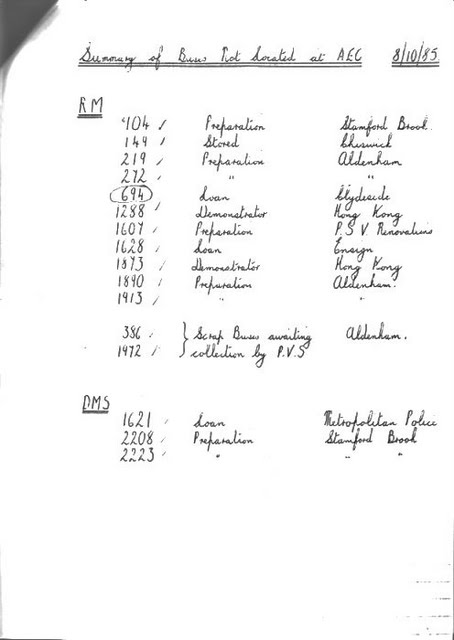 Summary of Buses Not Located at AEC 8/10/85
RM
104 ✓ Preparation Stamford Brook
149 ✓ Stored Chiswick
219 ✓ Preparation Aldenham
272 ✓ " "
694 Loan Clydeside
1288 ✓ Demonstrator Hong Kong
1607 ✓ Preparation P.S.V. Renovations
1628 ✓ Loan Ensign
1873 ✓ Demonstrator Hong Kong
1890 ✓ Preparation Aldenham.
1913 ✓ " "
386 ✓ } Scrap Buses awaiting Aldenham.
1972 ✓ } collection by P.V.S
DMS
1621 ✓ Loan Metropolitan Police
2208 ✓ Preparation Stamford Brook
2223 ✓ " " "